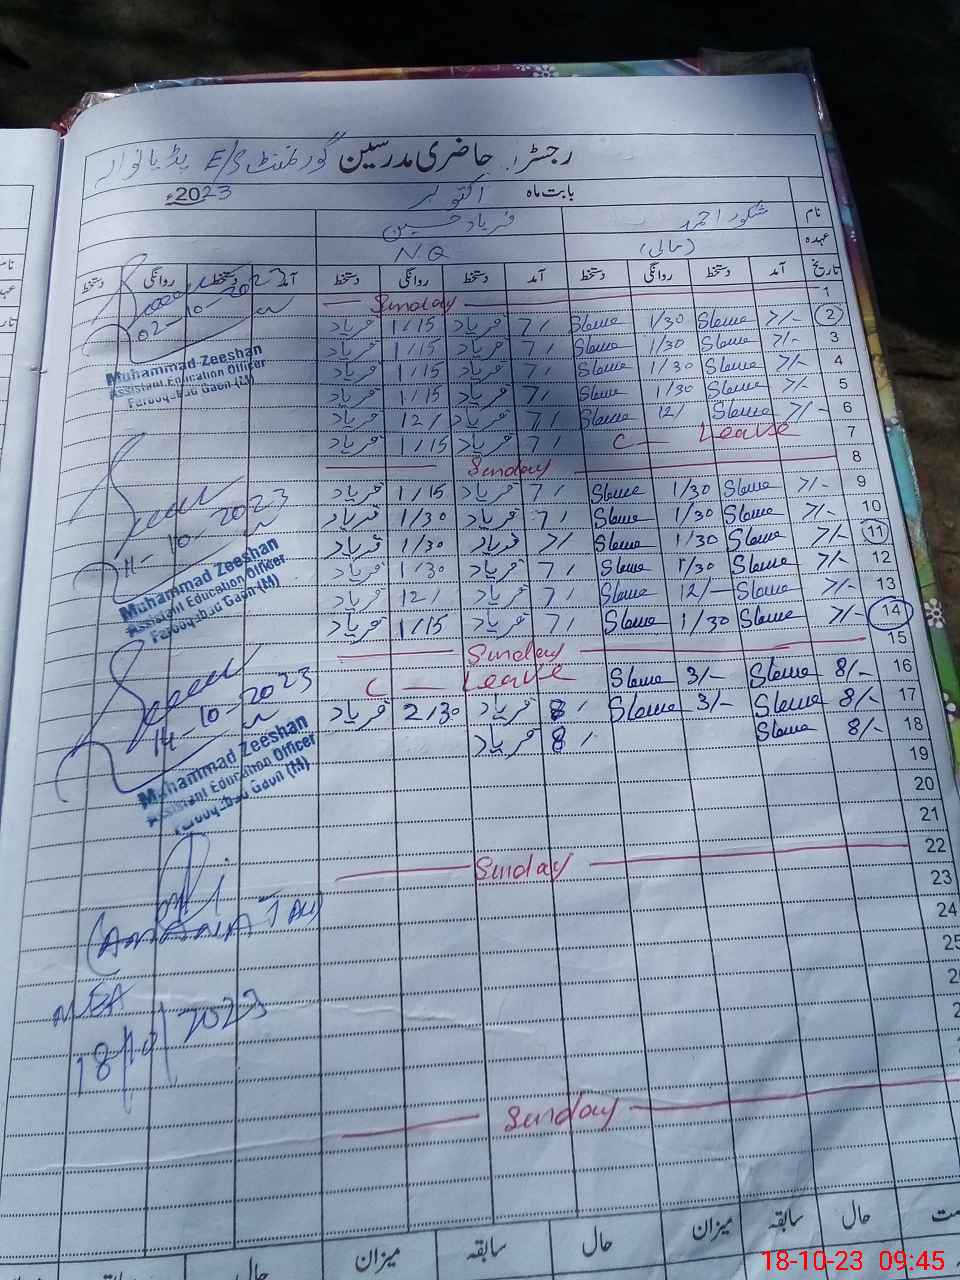 رجسٹر حاضری مدرسین گورنمنٹ E/S
بابت ماہ اکتوبر 2023ء
نام شکور احمد فریاد حسین
عہدہ (مالی) N.Q
تاریخ آمد دستخط روانگی دستخط آمد دستخط روانگی دستخط آمد دستخط روانگی دستخط
1 Sunday
2 7/- Slame 1/30 Slame 7/ فریاد 1/15 فریاد
3 7/- Slame 1/30 Slame 7/ فریاد 1/15 فریاد
4 7/- Slame 1/30 Slame 7/ فریاد 1/15 فریاد
5 7/- Slame 1/30 Slame 7/ فریاد 1/15 فریاد
6 7/- Slame 12/ Slame 7/ فریاد 12/ فریاد
7 C — Leave 7/ فریاد 1/15 فریاد
8 Sunday
9 7/- Slame 1/30 Slame 7/ فریاد 1/15 فریاد
10 7/- Slame 1/30 Slame 7/ فریاد 1/30 فریاد
11 7/- Slame 1/30 Slame 7/- فریاد 1/30 فریاد
12 7/- Slame 1/30 Slame 7/ فریاد 1/30 فریاد
13 7/- Slame 12/- Slame 7/ فریاد 12/ فریاد
14 7/- Slame 1/30 Slame 7/ فریاد 1/15 فریاد
15 Sunday
16 8/- Slame 3/- Slame C — Leave
17 8/- Slame 3/- Slame 8/ فریاد 2/30 فریاد
18 8/- Slame 8/ فریاد
19
20
21
22 Sunday
23
24
25
Sunday
02-10-2023
Muhammad Zeeshan
Assistant Education Officer
Farooqabad Gaon (M)
11-10-2023
Muhammad Zeeshan
Assistant Education Officer
Farooqabad Gaon (M)
14-10-2023
Muhammad Zeeshan
Assistant Education Officer
Farooqabad Gaon (M)
MEA
18/10/2023
حال سابقہ میزان حال سابقہ میزان حال
18-10-23 09:45